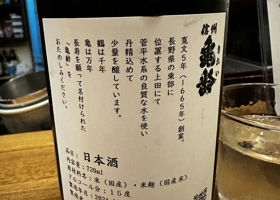 信州
亀齢
きれい
寛文5年（1665年）創業。
長野県の東部に
位置する上田にて
菅平水系の良質な水を使い
丹精込めて
少量を醸しています。
鶴は千年
亀は万年
長寿を願って名付けられた
「亀齢」を
おたのしみください。
品目：日本酒
内容量：720ml
原材料名：米（国産）・米麹（国産米）
アルコール分：15度
製造年月：2024